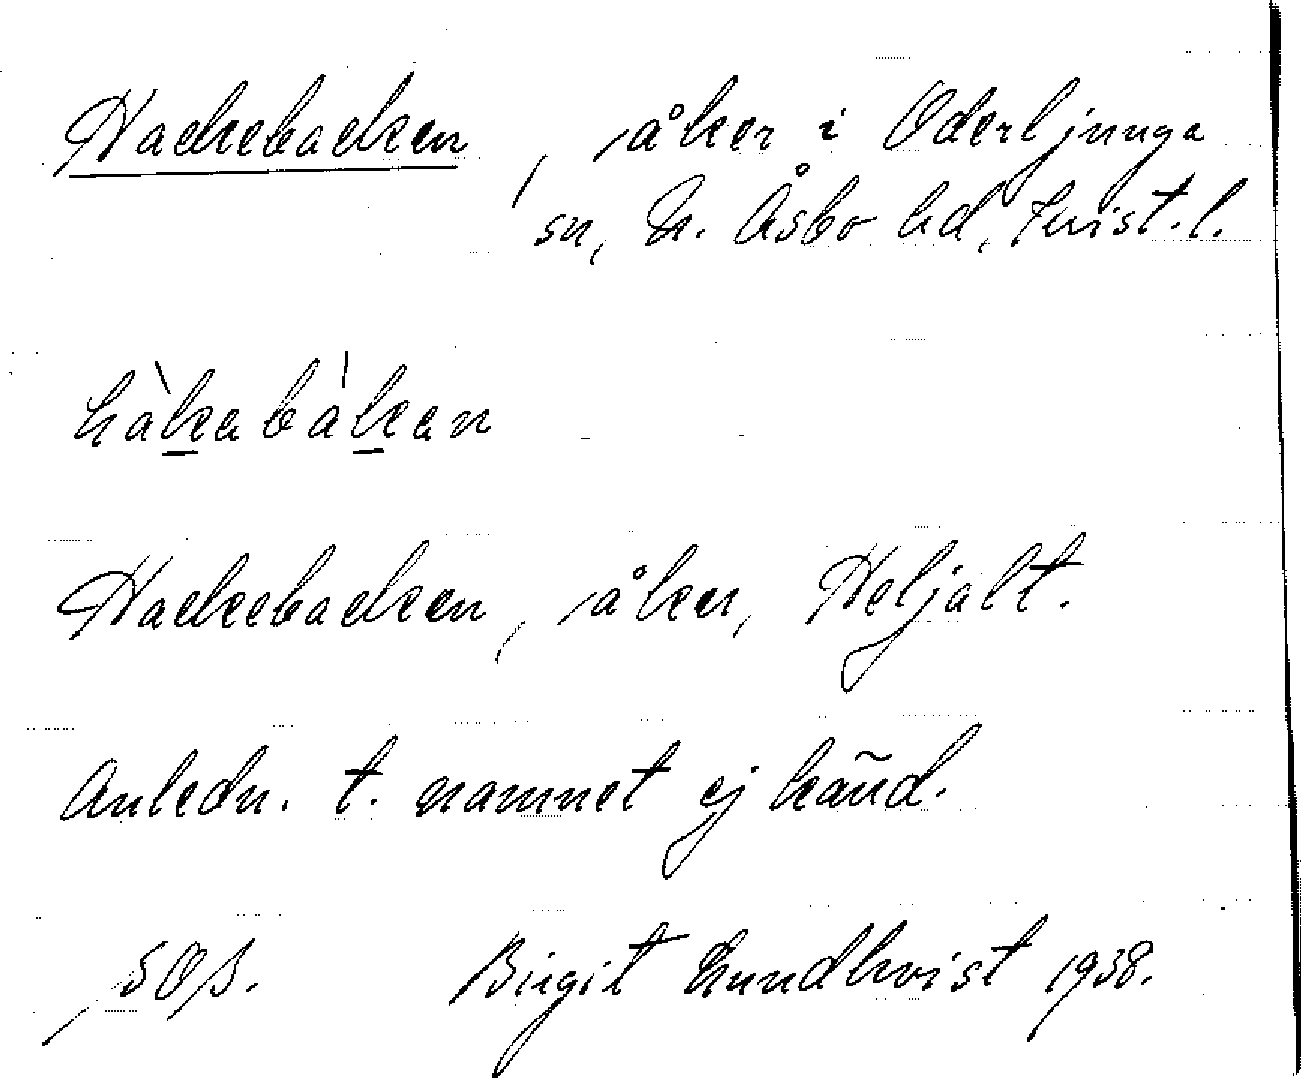 Hackebacken, åker i Oderljunga
sn, N. Åsbo hd, Krist. l.
hàkabàkan
Hackebacken, åker, Heljalt.
Anledn. t. namnet ej känd.
SOS. Birgit Lundkvist 1938.